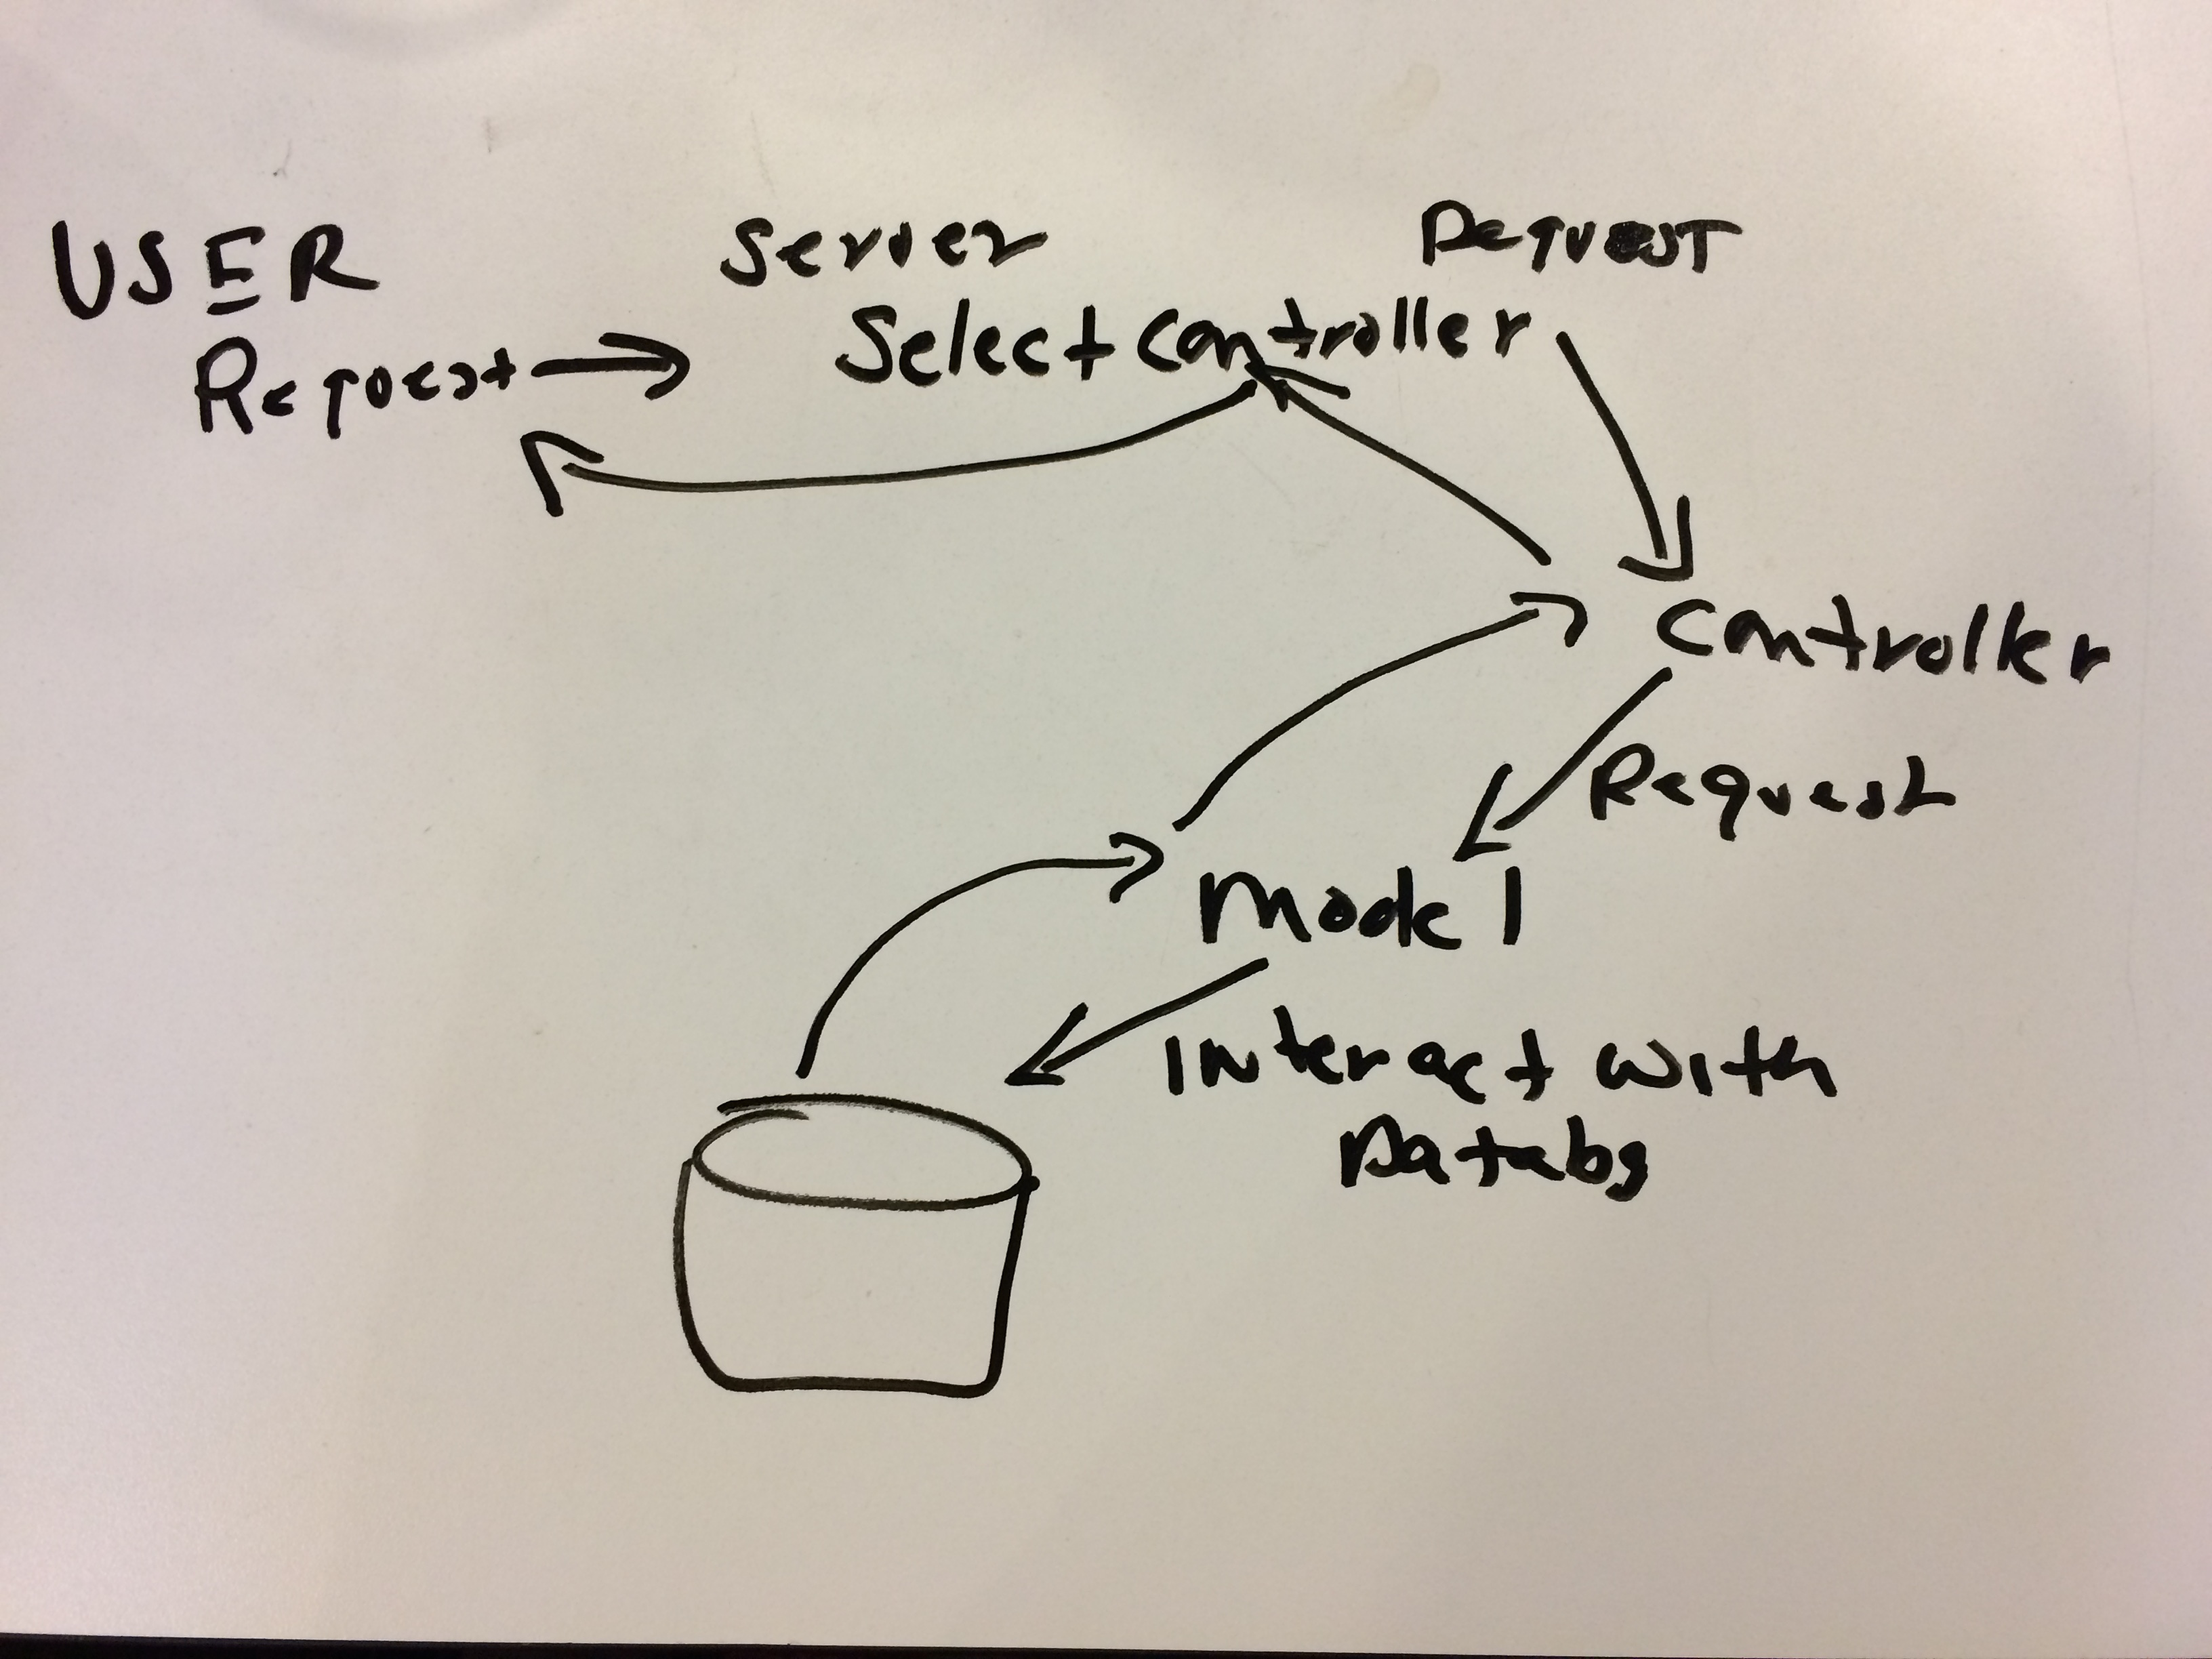 USER
Request
Server
Select Controller
Request
Controller
Request
Model
Interact with
Databs